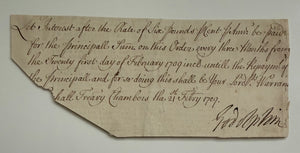 Let Interest after the Rate of Six Pounds p Cent p Ann. be paid
for the Principall Sum on this Order every three Months from
the Twenty first day of February 1709 until the Repaym.t of
the Principall and for so doing this shall be Your Lord.ps Warrant
hall Treāry Chambers the 21 Febry 1709.
Godolphin